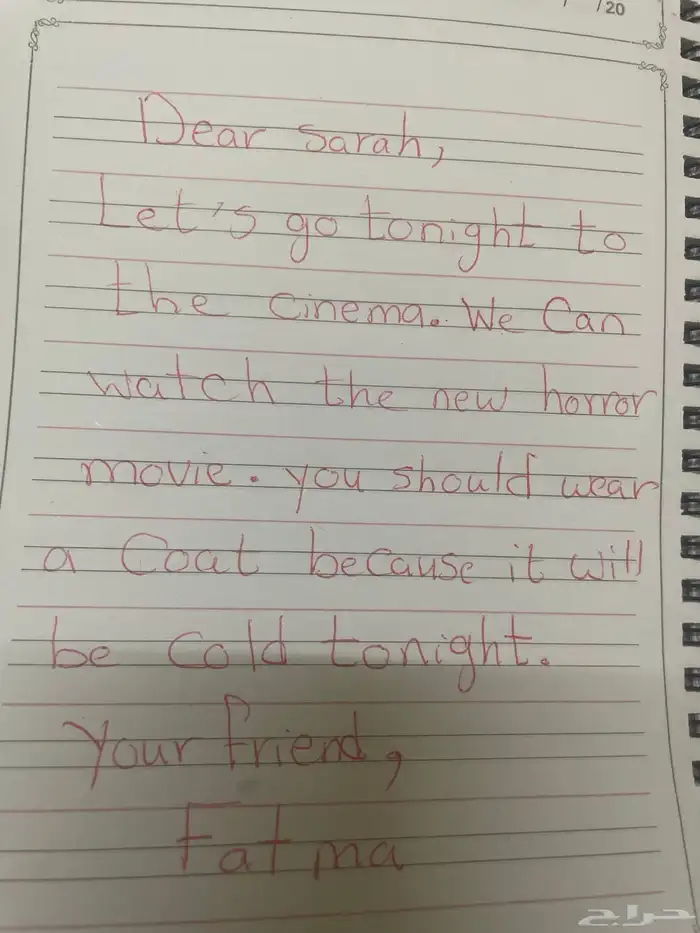 / /20
Dear Sarah,
Let's go tonight to
the cinema. We Can
watch the new horror
movie. you should wear
a Coat because it will
be cold tonight.
Your friend,
Fatma
حراج